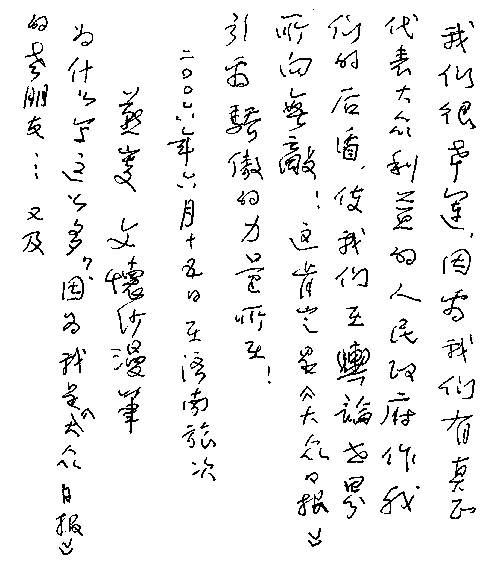 我们很幸运，因为我们有真正
代表大众利益的人民政府作我
们的后盾，使我们在輿論世界
所向無敵！这肯定是《大众日报》
引为骄傲的力量所在！
二〇〇六年六月十五日在济南旅次
燕叟 文懷沙漫筆
为什么写这么多？因为我是《大众日报》
的老朋友…又及